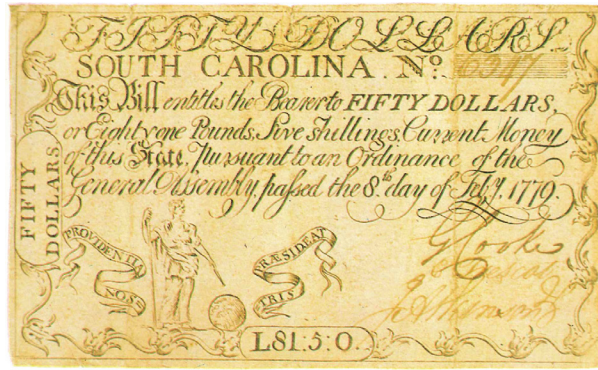 FIFTY DOLLARS.
SOUTH CAROLINA. No. 6347
This Bill entitles the Bearer to FIFTY DOLLARS,
or Eighty one Pounds, Five shillings, Current Money
of this State, Pursuant to an Ordinance of the
General Assembly, passed the 8th day of Feby. 1779.
FIFTY
DOLLARS.
PROVIDENTIA
NOSS
PRÆSIDEAT
TRIS
G Cooke
L81:5:0.